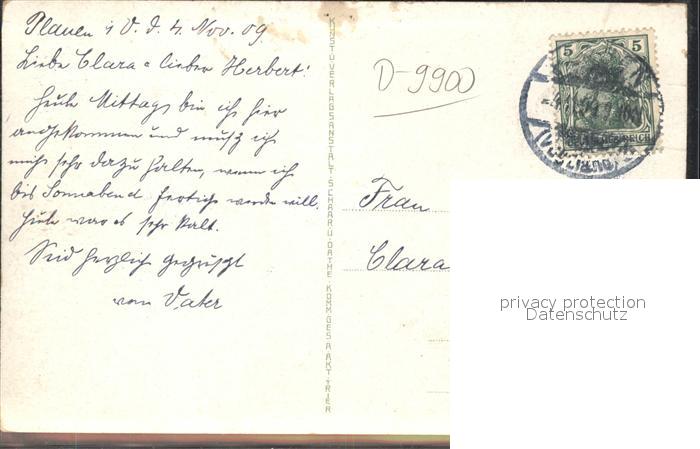 Plauen i V. d. 4. Nov. 09.
Liebe Clara u lieber Herbert!
Heute Mittag bin ich hier
angekommen und muß ich
mich sehr dazu halten, wenn ich
bis Sonnabend fertig werden will.
Heute war es sehr kalt.
Seid herzlich gegrüßt
von Vater
KUNST U. VERLAGSANSTALT SCHAAR U. DATHE KOMM.GES.A.AKT. TRIER
D-9900
5 5
REICH
Frau
Clara
privacy protection
Datenschutz